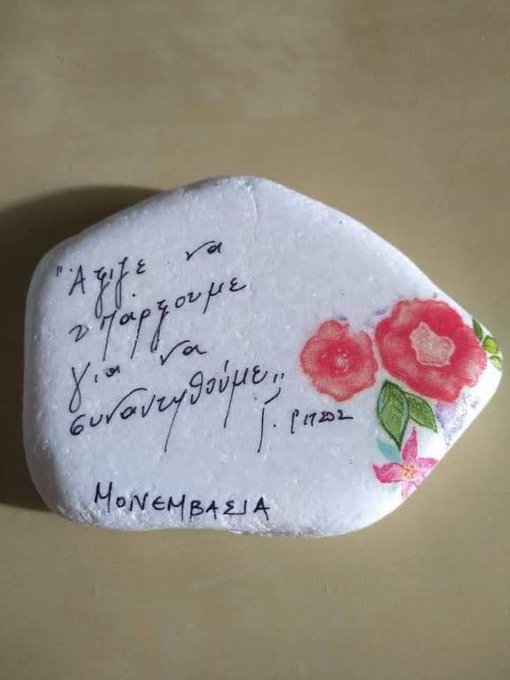 "Άξιζε να
υπάρξουμε
για να
συναντηθούμε"
Γ. Ρίτσος
ΜΟΝΕΜΒΑΣΙΑ